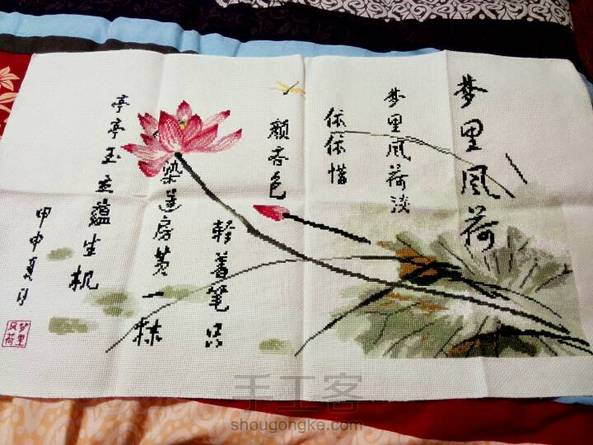 梦里风荷
梦里风荷淡
依依惜
颜吝色
轻着笔只
染莲房黄一抹
亭亭玉立蕴生机
甲申夏月
梦里风荷
手工客
shougongke.com